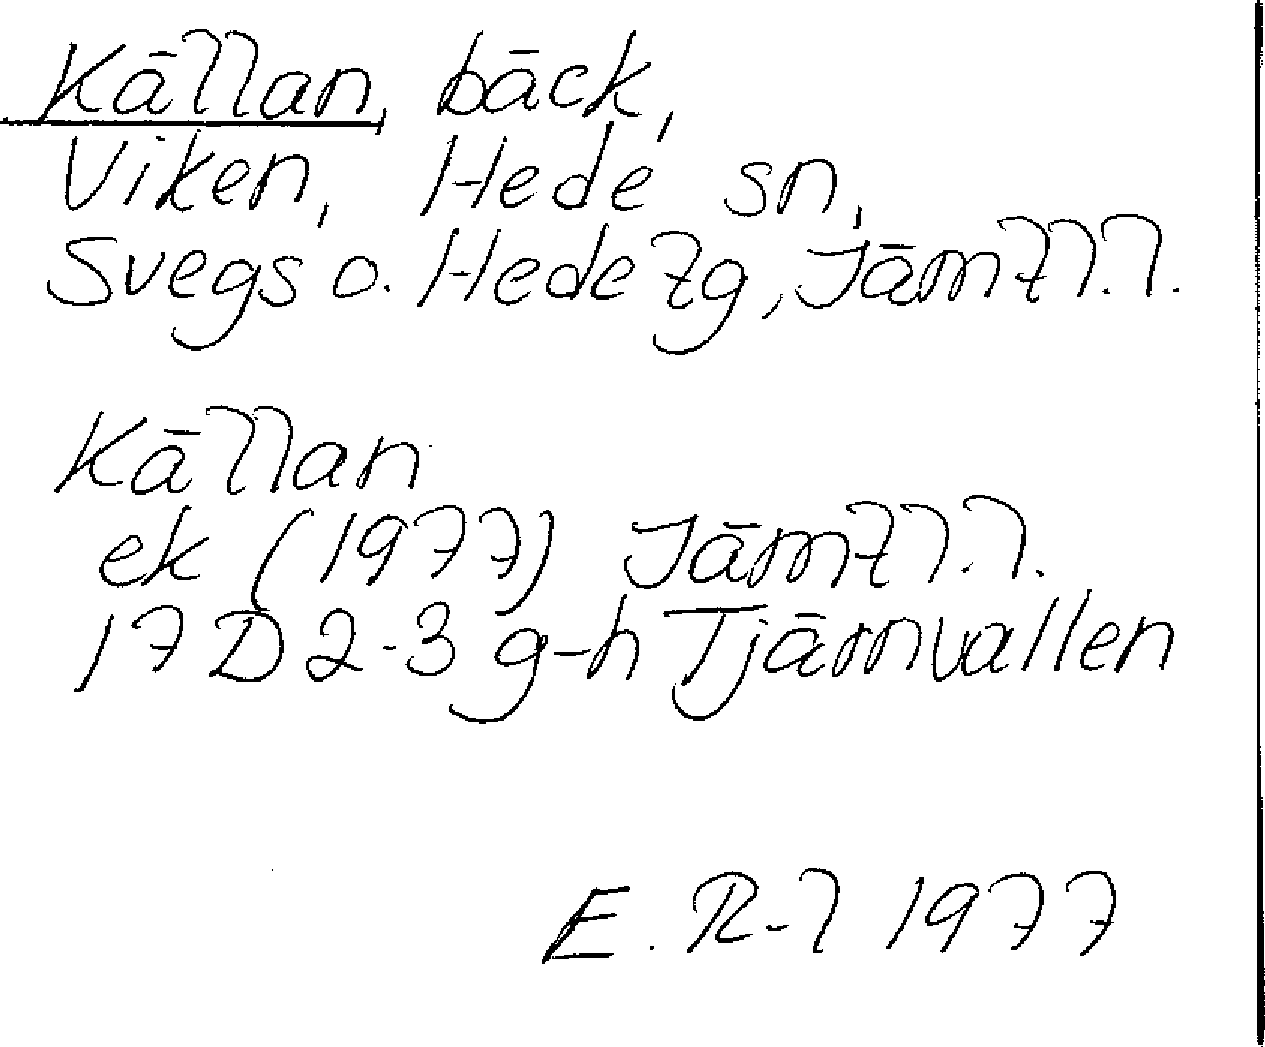 Källan, bäck,
Viken, Hede sn,
Svegs o. Hede tg, Jämtl.l.
Källan
ek (1977) Jämtl.l.
17D 2-3 g-h Tjärnvallen
E. R-l 1977